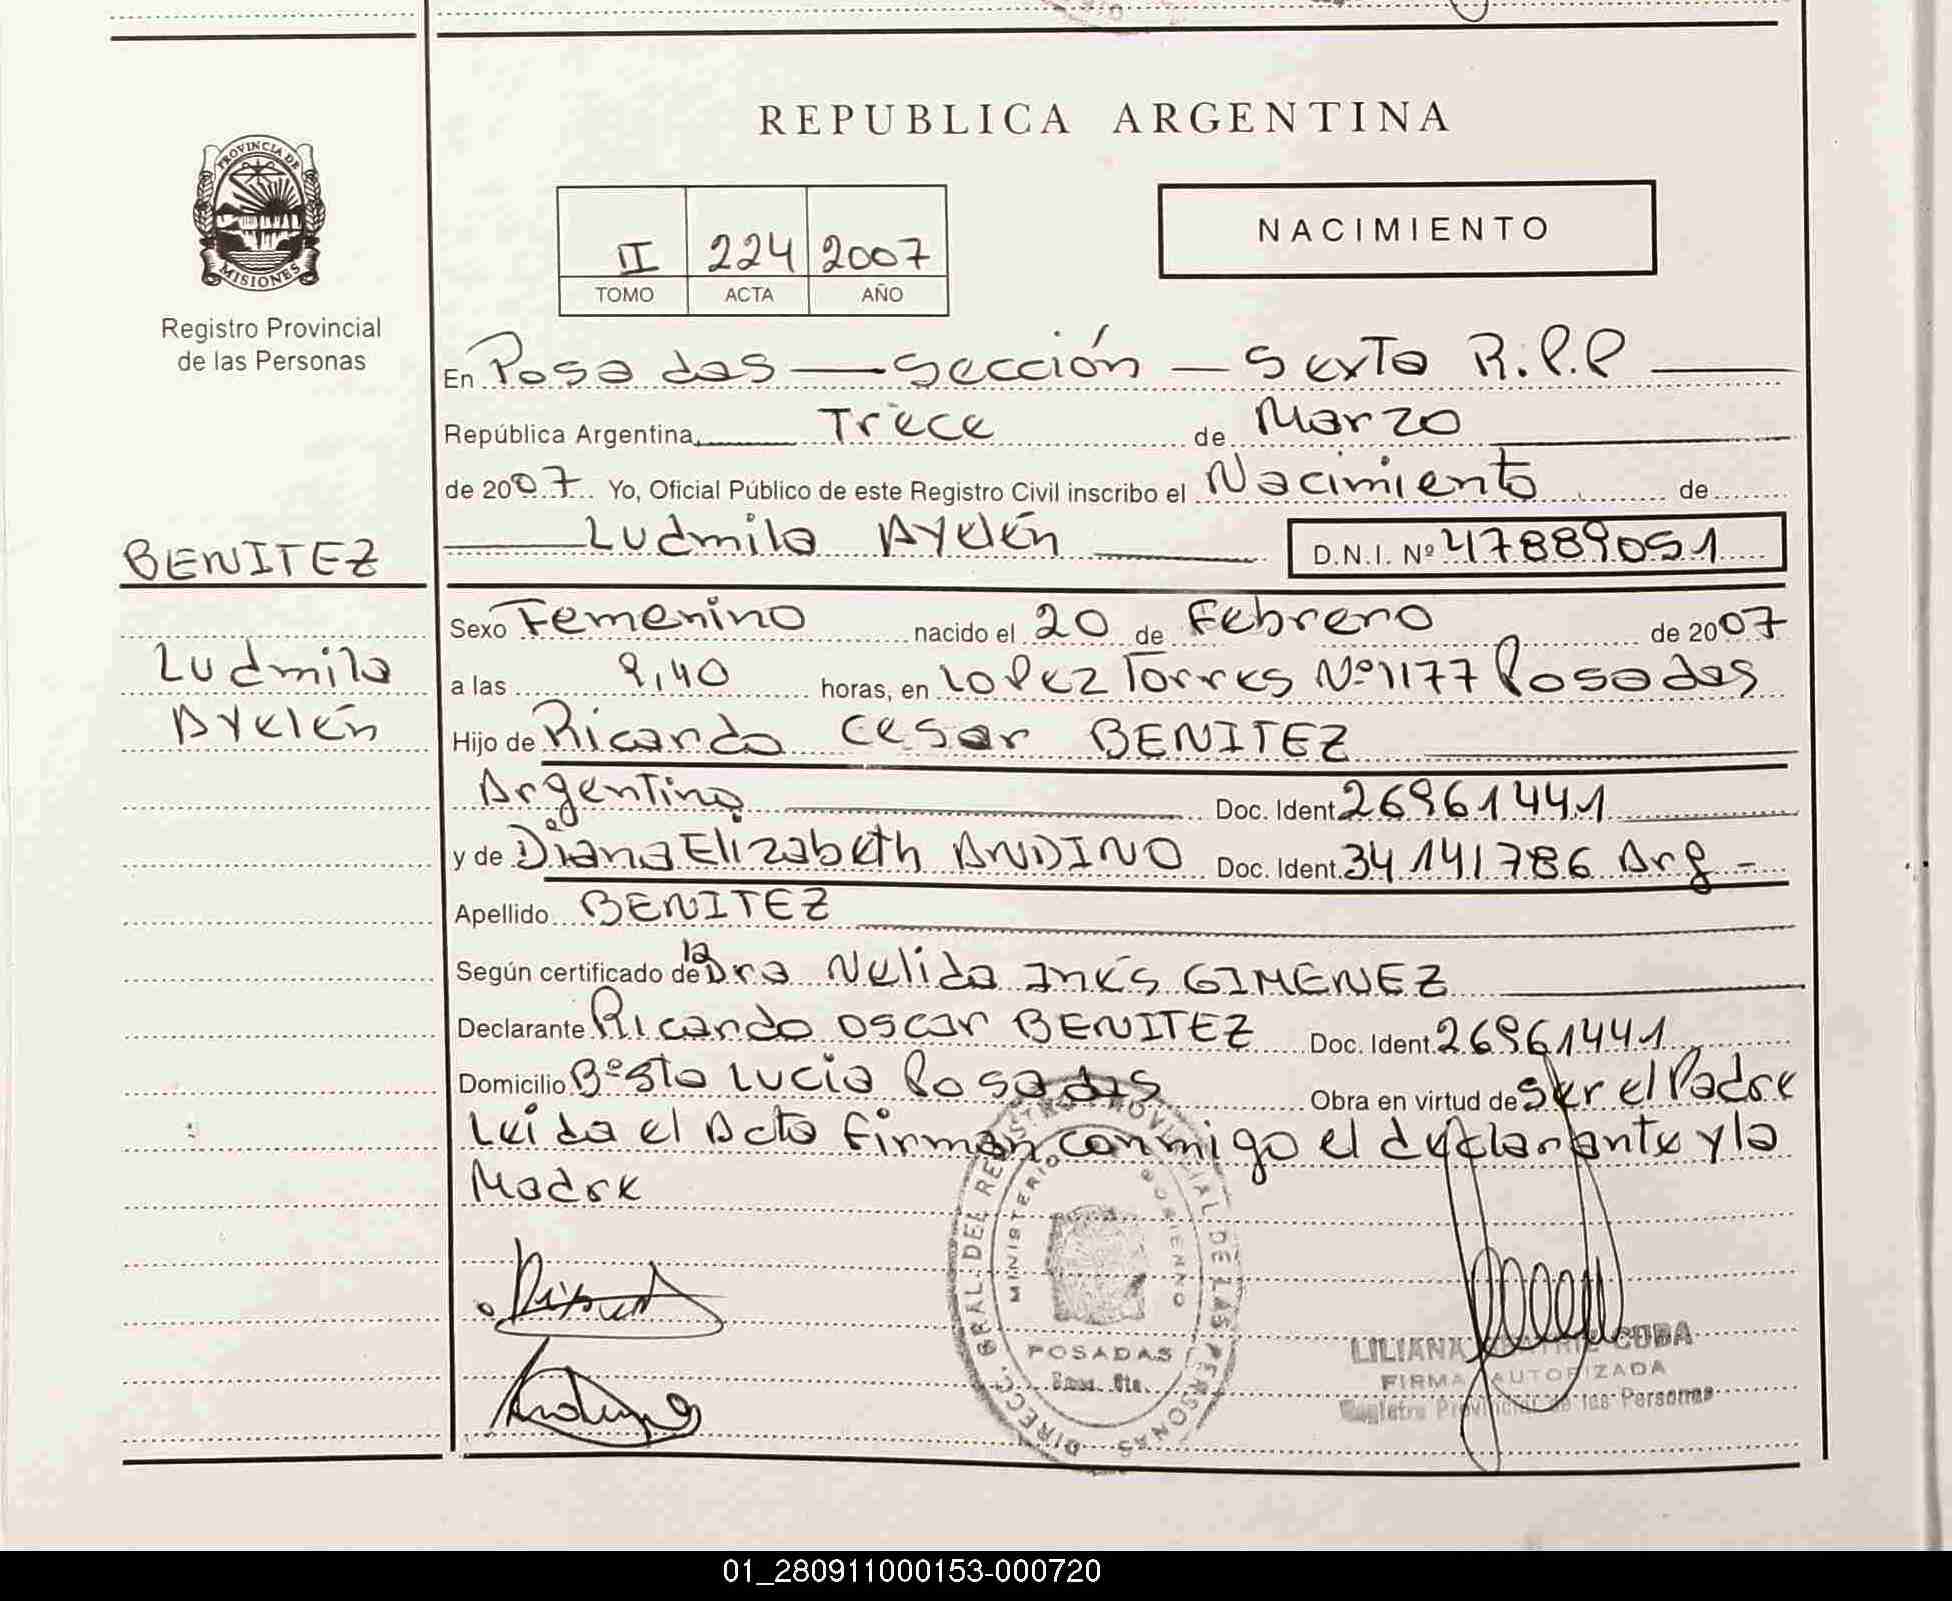 REPUBLICA ARGENTINA
PROVINCIA DE
MISIONES
Registro Provincial
de las Personas
II 224 2007
TOMO ACTA AÑO
NACIMIENTO
En Posadas — sección — Sexta R.P.P
República Argentina, Trece de Marzo
de 2007 Yo, Oficial Público de este Registro Civil inscribo el Nacimiento de
Ludmila Ayelén D.N.I. Nº 47889051
BENITEZ
Ludmila
Ayelén
Sexo Femenino nacido el 20 de Febrero de 2007
a las 9,40 horas, en Lopez Torres Nº 1177 Posadas
Hijo de Ricardo Cesar BENITEZ
Argentino Doc. Ident. 26961441
y de Diana Elizabeth ANDINO Doc. Ident. 34141786 Arg -
Apellido BENITEZ
Según certificado de la Dra Nelida Inés GIMENEZ
Declarante Ricardo oscar BENITEZ Doc. Ident. 26961441
Domicilio Bº Sta Lucia Posadas Obra en virtud de Ser el Padre
Leida el Acta firman conmigo el declarante y la
Madre
DIRECC. GRAL. DEL REGISTRO PROVINCIAL DE LAS PERSONAS
MINISTERIO GOBIERNO
POSADAS
LILIANA CUBA
FIRMA AUTORIZADA
Registro Provincial de las Personas
01_280911000153-000720